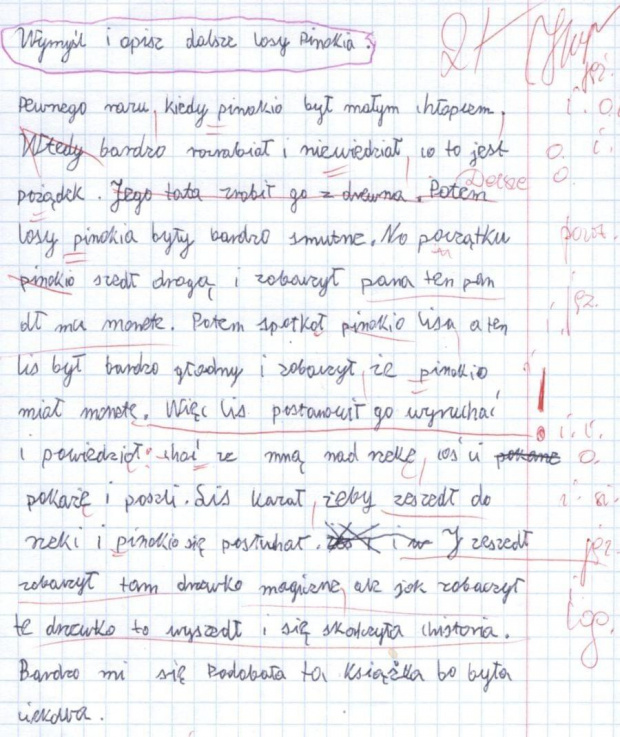 Wymyśl i opisz dalsze losy Pinokia.
2+
Pewnego razu, kiedy pinokio był małym chłopcem, i. o.
Wtedy bardzo rozrabiał i niewiedział, co to jest o. i.
pożądek. Jego tata zrobił go z drewna. Potem Dalsze o.
losy pinokia były bardzo smutne. No początku powt.
pinokio szedł drogą i zobaczył pana ten pan
dł mu monete. Potem spotkoł pinokio lisa a ten i. jęz.
lis był bardzo głodny i zobaczył, że pinokio i
miał monetę. Więc lis postanowił go wyruchać !
i powiedzioł: chać ze mną nad rzekę, coś ci pokane o.
pokażę i poszli. Lis kazał, żeby zeszedł do
rzeki i pinokio się posłuchał. i J zeszedł jęz.
zobaczył tam drzewko magiczne, ale jok zobaczył
te drzewko to wyszedł i się skończyła chistoria.
Bardzo mi się Podobała ta Książka bo była
ciekawa.